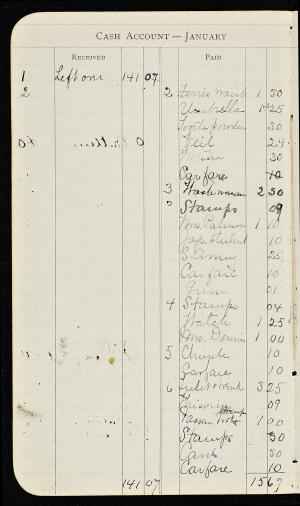 CASH ACCOUNT—JANUARY
RECEIVED PAID
1 Left over 141 07
2 2 Ferris waist 1 50
Umbrella 1 25
Tooth powder 30
Veil 24
30
Carfare 10
3 Washwoman 2 50
Stamps 09
Mrs. Palmer 1 10
Jap. student 10
S. Army 25
Carfare 10
Gum 01
4 Stamps 04
Watch 1 25
Mrs. Dennis 1 00
5 Church 10
Carfare 10
6 3 25
09
1 00
Stamps 50
Cards 50
Carfare 10
141 07 15 67